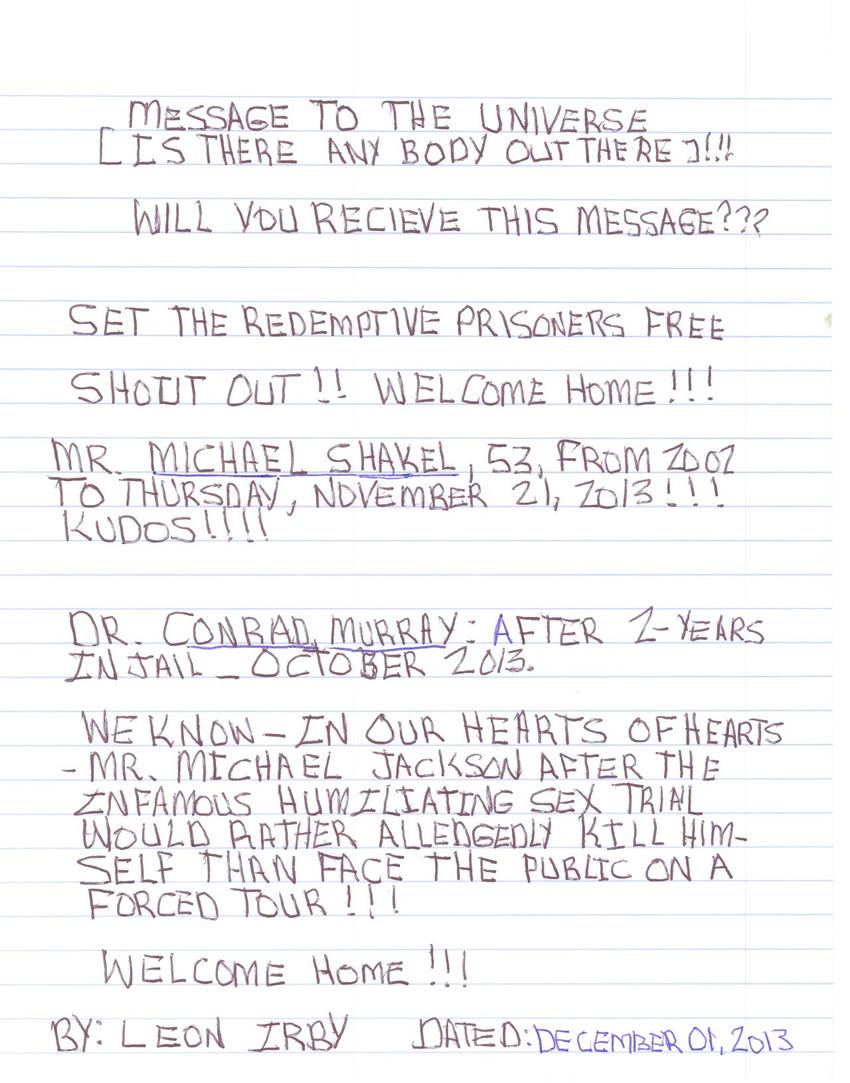 MESSAGE TO THE UNIVERSE
[IS THERE ANY BODY OUT THERE]!!!
WILL YOU RECIEVE THIS MESSAGE???
SET THE REDEMPTIVE PRISONERS FREE
SHOUT OUT!! WELCOME HOME!!!
MR. MICHAEL SHAKEL, 53, FROM 2002
TO THURSDAY, NOVEMBER 21, 2013!!!
KUDOS!!!!
DR. CONRAD, MURRAY: AFTER 2-YEARS
IN JAIL _ OCTOBER 2013.
WE KNOW - IN OUR HEARTS OF HEARTS
- MR. MICHAEL JACKSON AFTER THE
INFAMOUS HUMILIATING SEX TRIAL
WOULD RATHER ALLEDGEDLY KILL HIM-
SELF THAN FACE THE PUBLIC ON A
FORCED TOUR!!!
WELCOME HOME!!!
BY: LEON IRBY DATED: DECEMBER 01, 2013